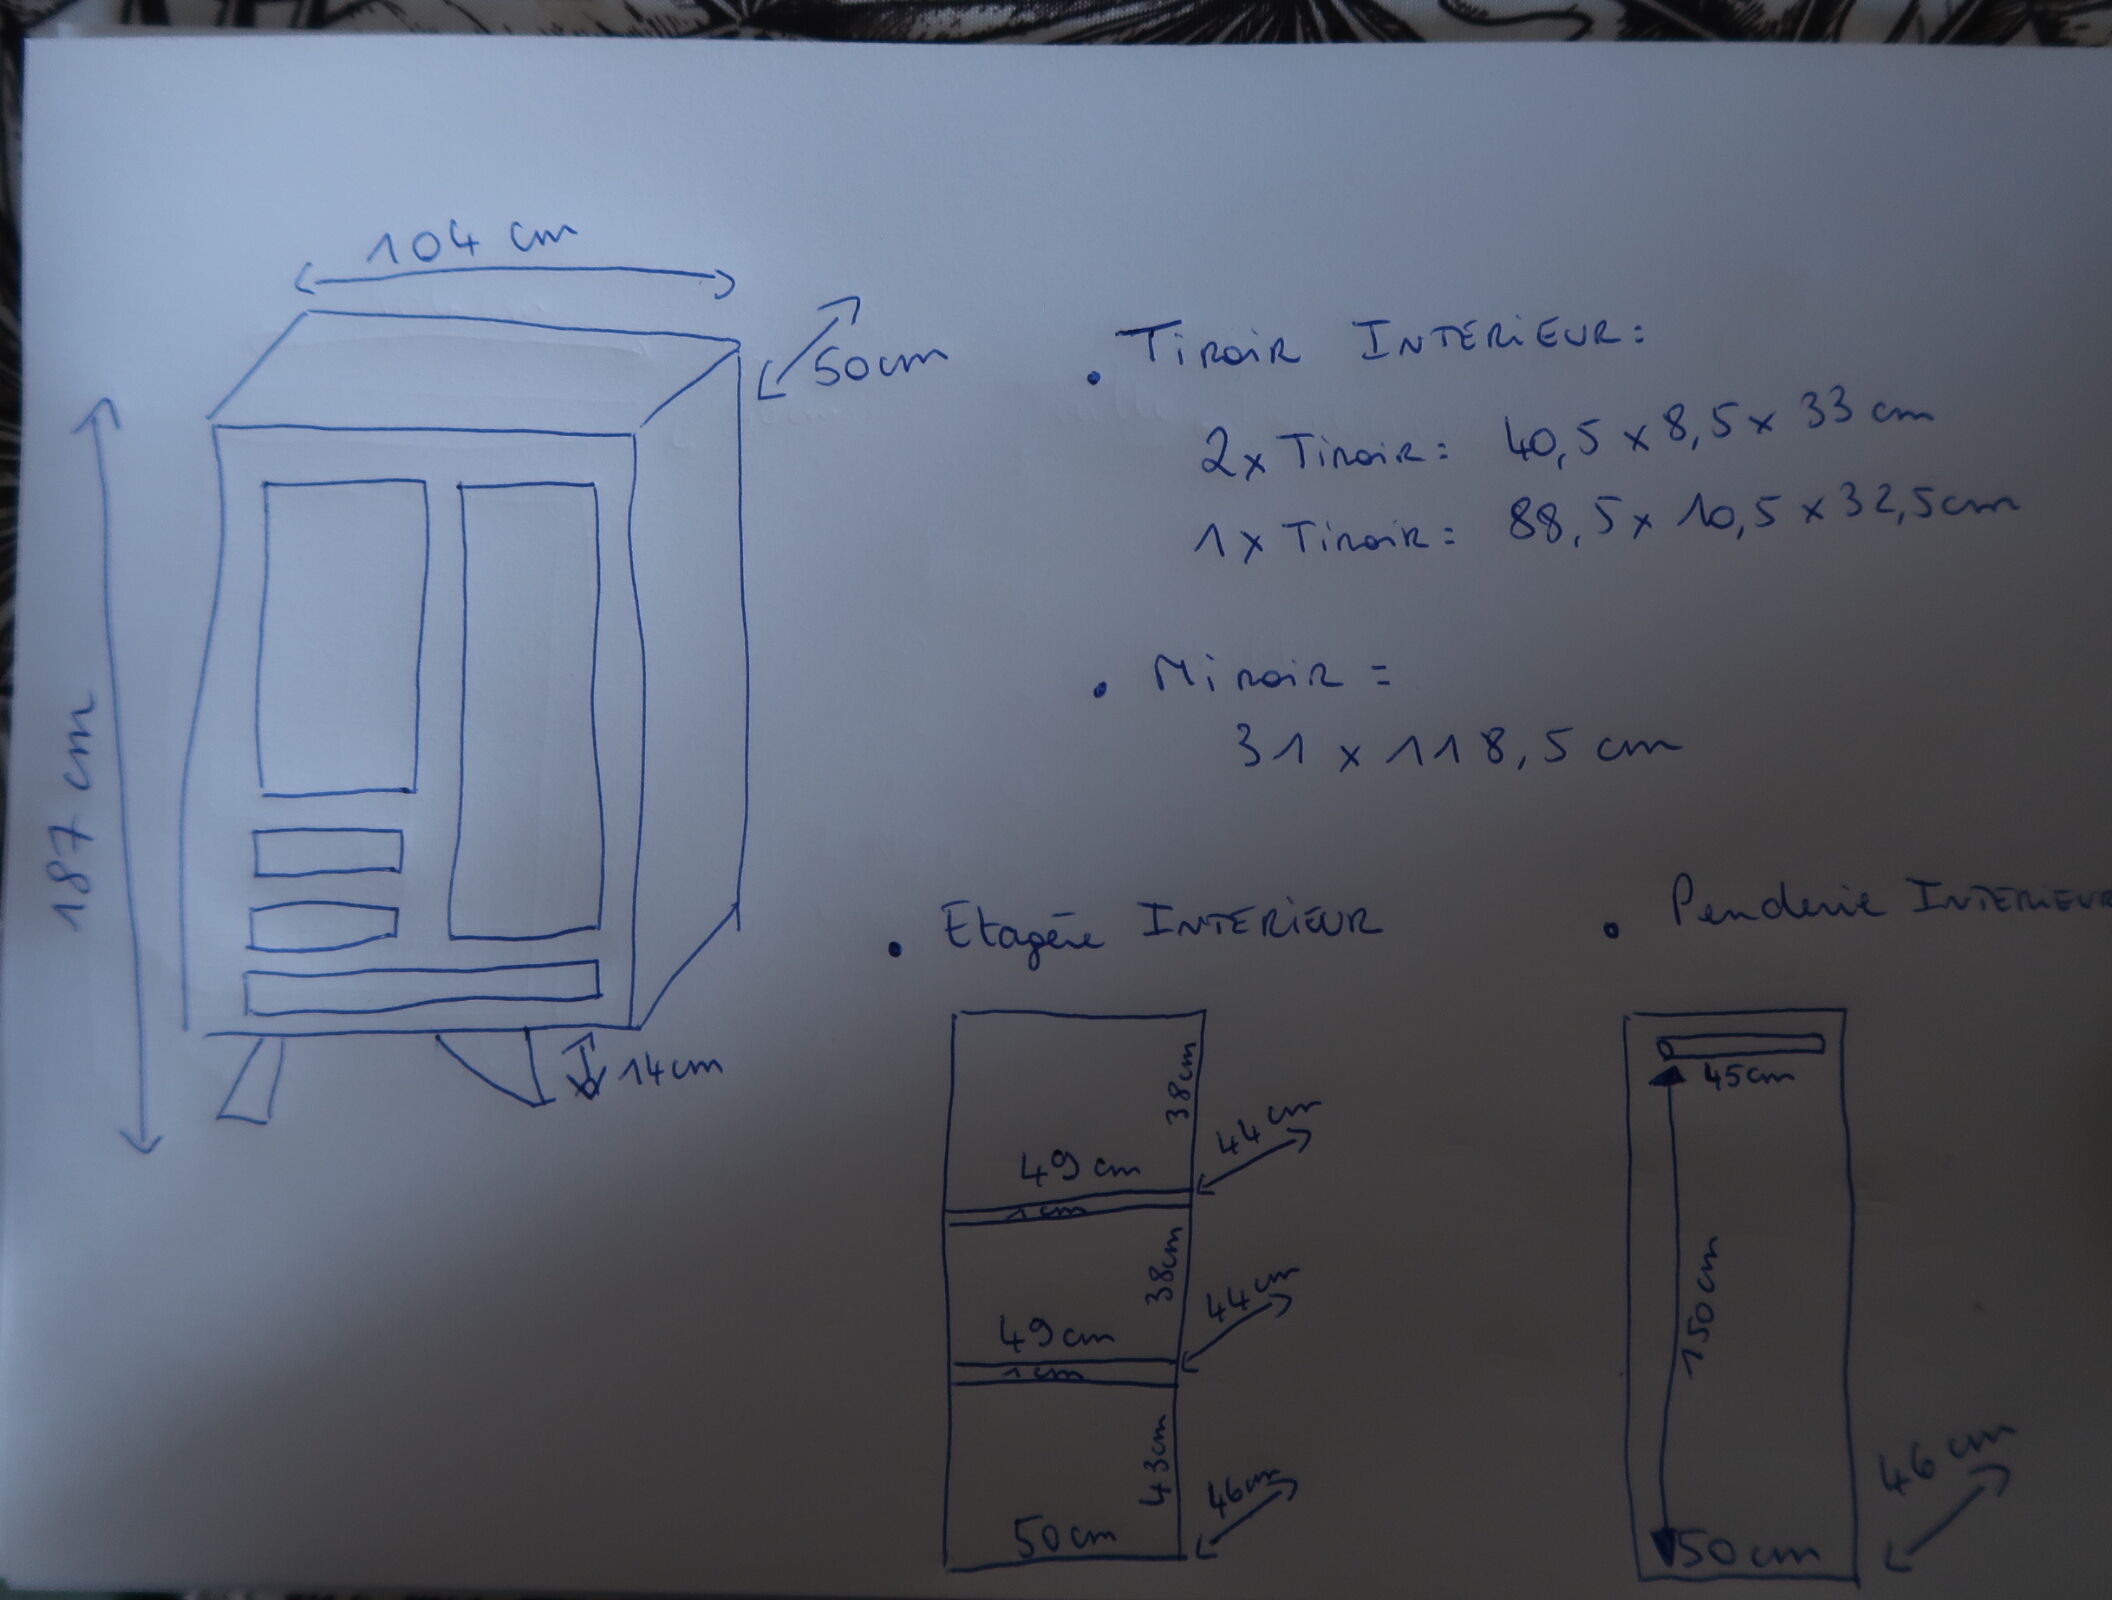 104 cm
50cm
187 cm
14cm
• Tiroir INTERIEUR:
2x Tiroir: 40,5 x 8,5 x 33 cm
1x Tiroir: 88,5 x 10,5 x 32,5cm
• Miroir =
31 x 118,5 cm
• Etagère INTERIEUR
38cm
44cm
49 cm
1cm
38cm
44cm
49cm
1cm
43cm
46cm
50cm
• Penderie INTERIEUR
45cm
150cm
46cm
50cm